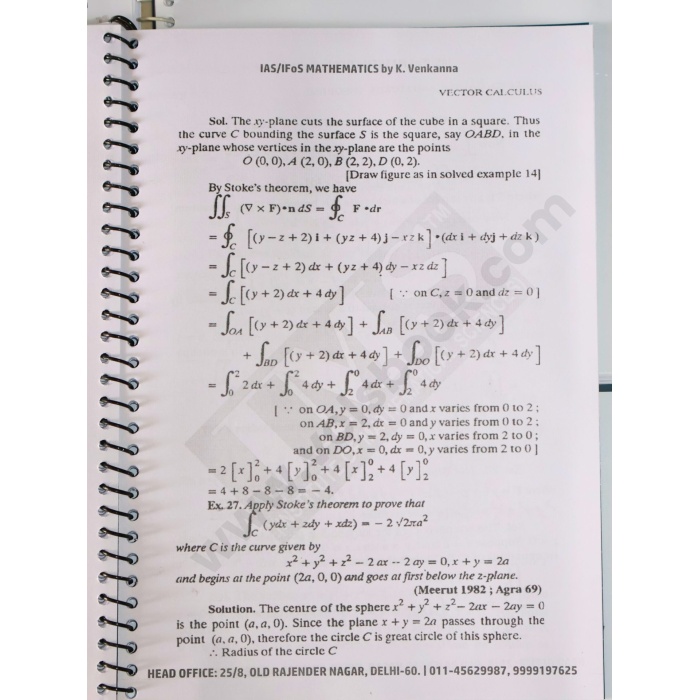 IAS/IFoS MATHEMATICS by K. Venkanna
VECTOR CALCULUS
Sol. The xy-plane cuts the surface of the cube in a square. Thus
the curve C bounding the surface S is the square, say OABD, in the
xy-plane whose vertices in the xy-plane are the points
O (0, 0), A (2, 0), B (2, 2), D (0, 2).
[Draw figure as in solved example 14]
By Stoke's theorem, we have
∬_S (∇ × F)•n dS = ∮_C F •dr
= ∮_C [(y − z + 2) i + (yz + 4) j − xz k] •(dx i + dyj + dz k)
= ∫_C [(y − z + 2) dx + (yz + 4) dy − xz dz]
= ∫_C [(y + 2) dx + 4 dy] [ ∵ on C, z = 0 and dz = 0 ]
= ∫_OA [(y + 2) dx + 4 dy] + ∫_AB [(y + 2) dx + 4 dy]
+ ∫_BD [(y + 2) dx + 4 dy] + ∫_DO [(y + 2) dx + 4 dy]
= ∫_0^2 2 dx + ∫_0^2 4 dy + ∫_2^0 4 dx + ∫_2^0 4 dy
[ ∵ on OA, y = 0, dy = 0 and x varies from 0 to 2 ;
on AB, x = 2, dx = 0 and y varies from 0 to 2 ;
on BD, y = 2, dy = 0, x varies from 2 to 0 ;
and on DO, x = 0, dx = 0, y varies from 2 to 0 ]
= 2 [x]_0^2 + 4 [y]_0^2 + 4 [x]_2^0 + 4 [y]_2^0
= 4 + 8 − 8 − 8 = − 4.
Ex. 27. Apply Stoke's theorem to prove that
∫_C (ydx + zdy + xdz) = − 2 √2πa²
where C is the curve given by
x² + y² + z² − 2 ax -- 2 ay = 0, x + y = 2a
and begins at the point (2a, 0, 0) and goes at first below the z-plane.
(Meerut 1982 ; Agra 69)
Solution. The centre of the sphere x² + y² + z² − 2ax − 2ay = 0
is the point (a, a, 0). Since the plane x + y = 2a passes through the
point (a, a, 0), therefore the circle C is great circle of this sphere.
∴ Radius of the circle C
HEAD OFFICE: 25/8, OLD RAJENDER NAGAR, DELHI-60. | 011-45629987, 9999197625